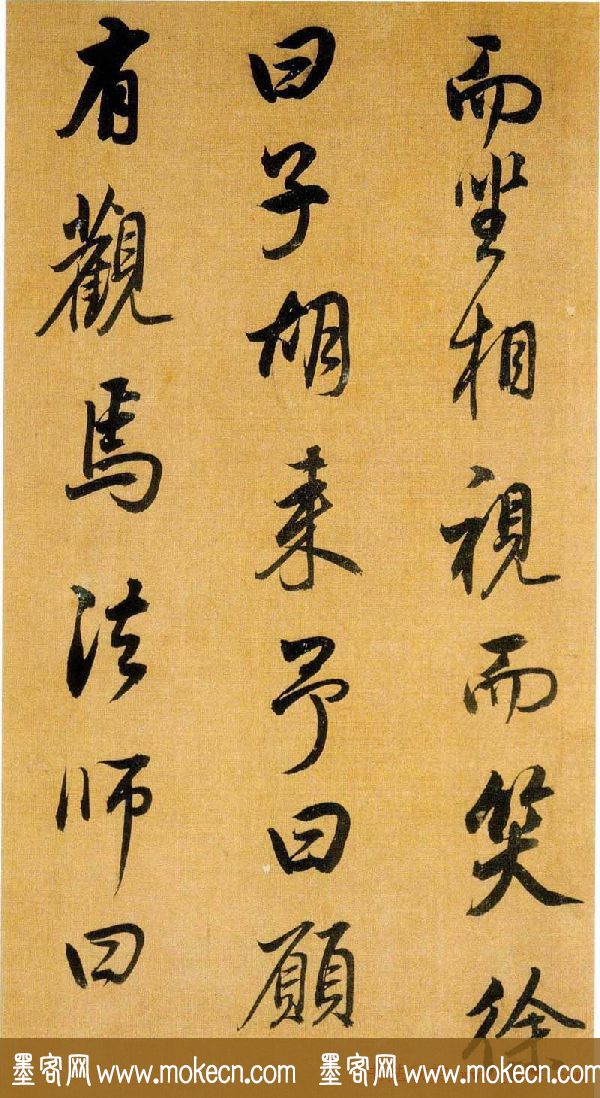 而坐相視而笑徐
曰子胡来予曰願
有觀焉法师曰
墨客网 www.mokecn.com 墨客网 www.mokecn.com